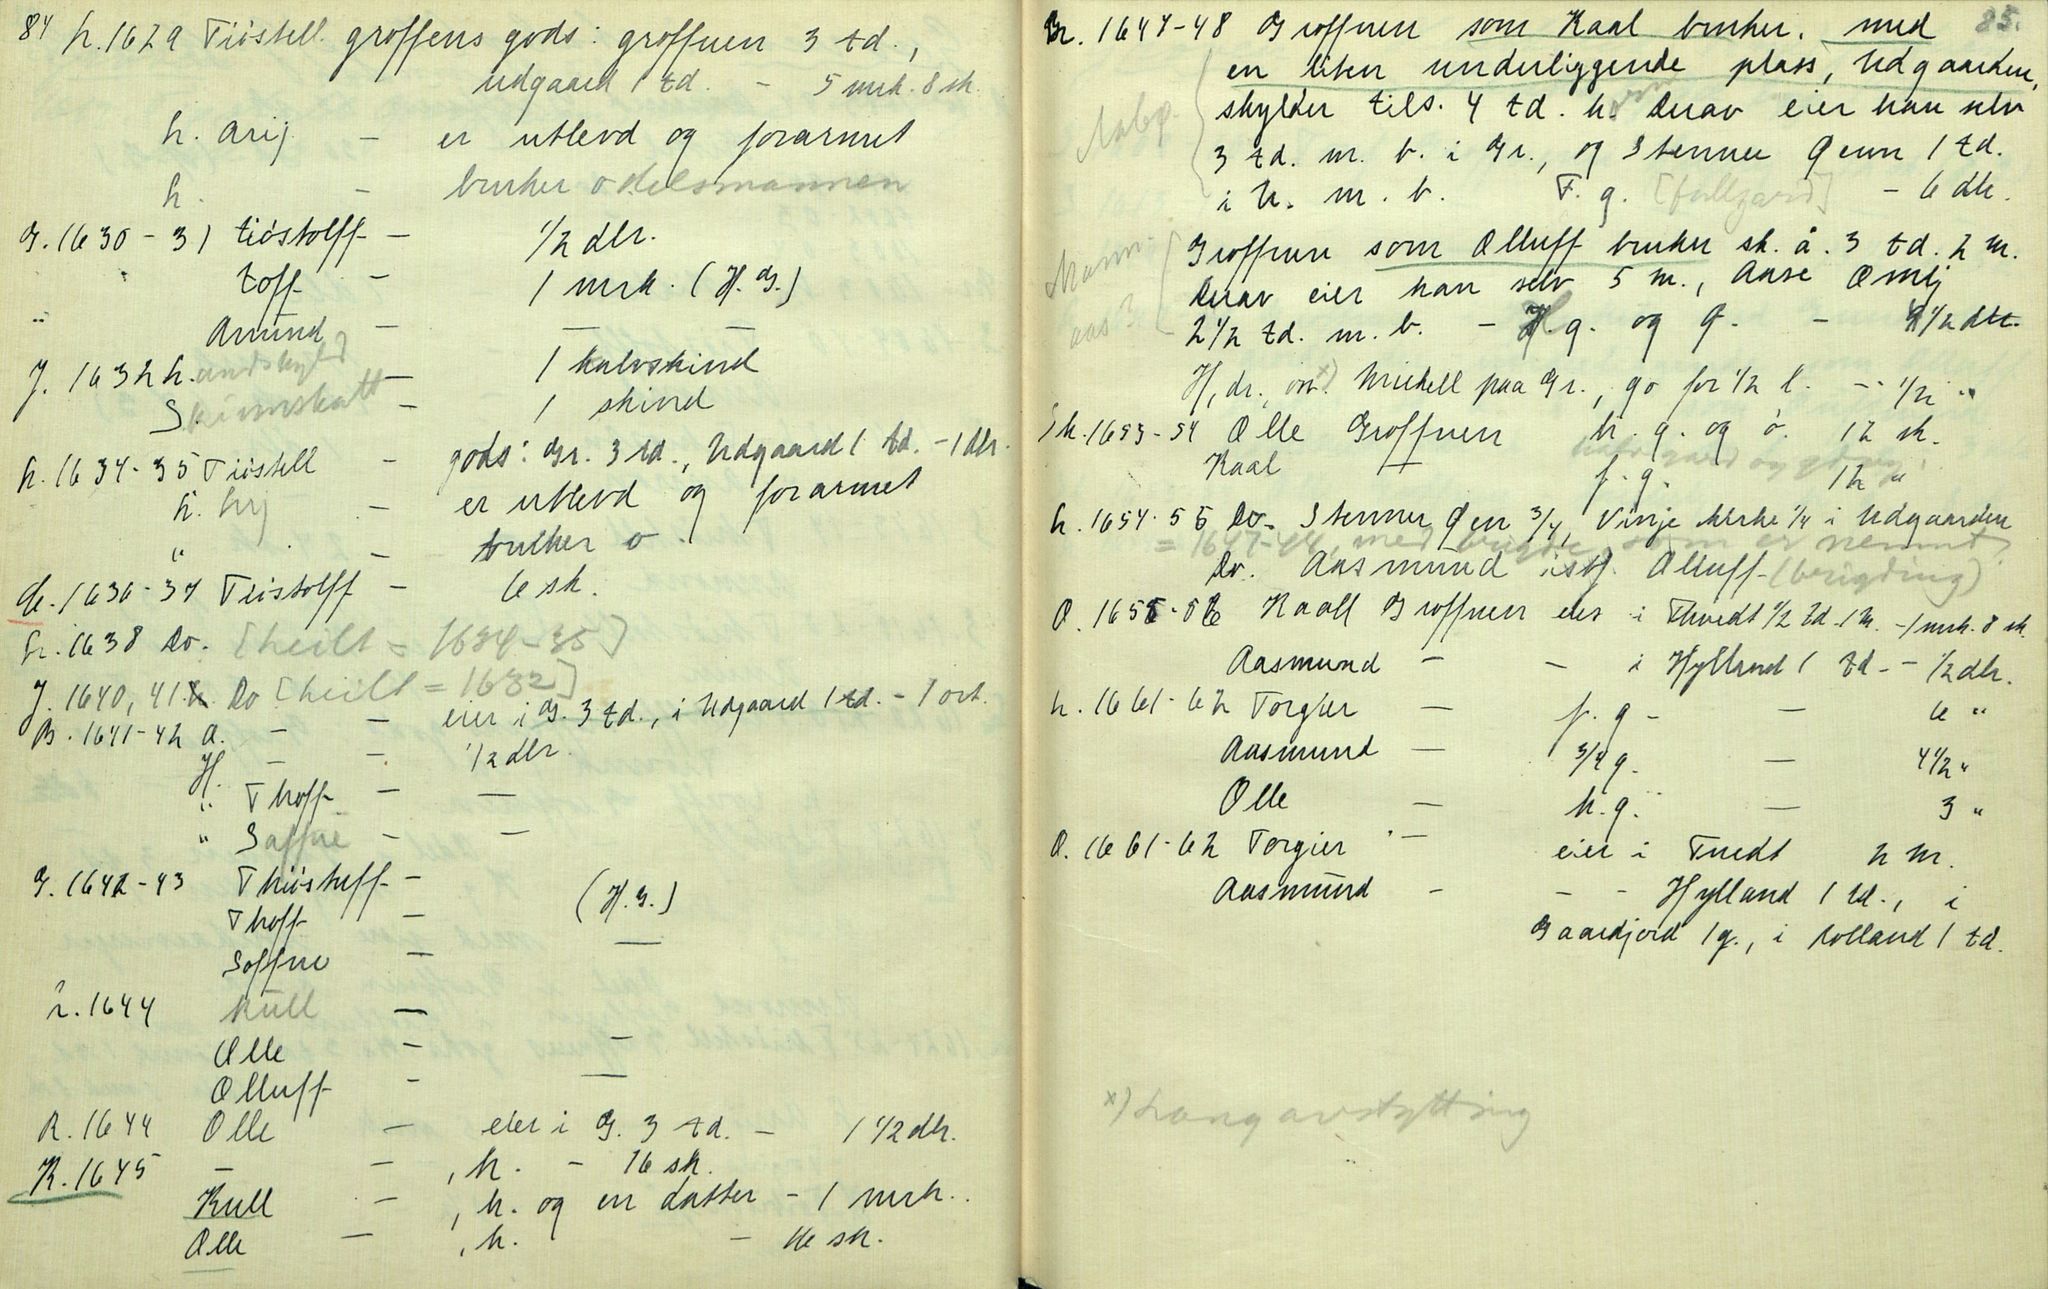 84 h. 1629 Tiöstell groffens gods: groffuen 3 td.,
udgaard 1 td. - 5 mrk. 8 sk.
h. arij - er utlevd og forarmet
h. - bruker odelsmannen
G. 1630-31 tiöstolff - 1/2 dlr.
toff - 1 mrk. (H.G.)
" Amund - — —
J. 1632 h. andskyld - 1 kalvskind
Skinnskatt - 1 skind
h. 1634-35 Tiöstell - gods: Gr. 3 td., Udgaard 1 td. - 1 dlr.
h. hrj - er utlevd og forarmet
" - bruker o
1636-37 Tiöstolff - 6 sk.
h. 1638 Do. [heilt = 1634-35]
J. 1640, 41 Do [heilt = 1632]
B. 1641-42 a. - - eier i G. 3 td., i Udgaard 1 td. - 1 ort.
H. - - 1/2 dlr.
" Thoff - —
" Saffue - —
G. 1642-43 Thiöstuff -
Thoff - (H.G.)
Soffue - —
h. 1644 Kull —
Olle - —
Olluff - —
R. 1644 Olle - eier i G. 3 td. - 1 1/2 dlr.
K. 1645 — - , h. - 16 sk.
Kull - , h. og en datter - 1 mrk.
Olle — , h. - 16 sk.
85.
Br. 1647-48 Groffuen som Kaal bruker, med
en liten underliggende plass, Udgaarden,
skylder tils. 4 td. Derav eier han selv
3 td. m. b. i Gr., og Stennu Qenn 1 td.
i U. m. b. F. g. [fullgard] - 6 dlr.
Groffuen som Olluff bruker sk. å. 3 td. 2 m.
Derav eier han selv 5 m., Aase Omlj
2 1/2 td. m. b. - H. g. og q. - 4 1/2 dlr.
H, dr., x) Michell paa Gr., go for 1/2 l. - 1/2 "
Sk. 1653-54 Olle Groffuen h. g. og ö. 12 sk.
Kaal — f. g. 12 "
h. 1654-55 Do. Stennu Qen 3/4, Vinje kirke 1/4 i Udgaarden
= 1647-48, med brigde som er nemnt
Do. Aasmund istf. Olluff (brigding)
O. 1655-56 Kaall Groffuen eier i Thuedt 1/2 td. 1 m. - 1 mrk. 8 sk.
Aasmund — - i Hylland 1 td. - 1/2 dlr.
h. 1661-62 Torgier — f. g. - — 6 "
Aasmund — 3/4 g. — 4 1/2 "
Olle — h. g. — 3 "
O. 1661-62 Torgier — eier i Tuedt 2 m.
Aasmund - - - Hylland 1 td., i
Gaardjord 1 q., i Lolland 1 td.
x) Lang avstytting